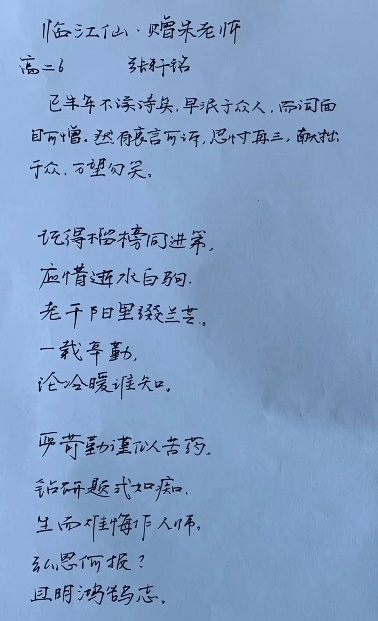 临江仙·赠朱老师
高二6 张轩铭
已半年不读诗矣,早泯于众人,而词面
目可憎。然有衷言可诉,思忖再三,献拙
于众,万望勿笑。
记得榴榜同进第,
应惜逝水白驹.
老干阳里缀兰芸。
一载辛勤,
沦冷暖谁知。
严苛勤谨似苦药,
钻研题式如痴.
生而难悔作人师。
弘恩何报?
且明鸿鹄志。